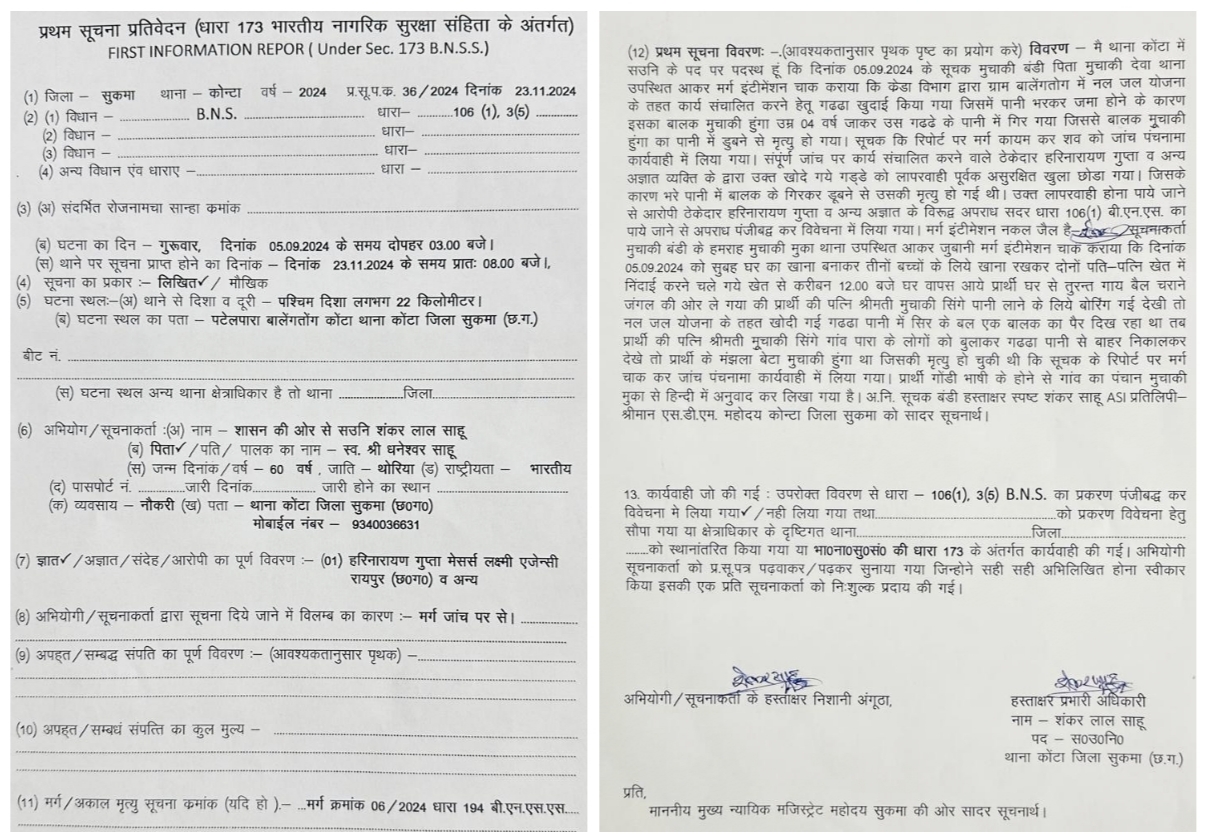 प्रथम सूचना प्रतिवेदन (धारा 173 भारतीय नागरिक सुरक्षा संहिता के अंतर्गत)
FIRST INFORMATION REPOR ( Under Sec. 173 B.N.S.S.)
(1) जिला – सुकमा थाना – कोन्टा वर्ष – 2024 प्र.सू.प.क. 36/2024 दिनांक 23.11.2024
(2) (1) विधान – .................. B.N.S. .............................. धारा– ..........106 (1), 3(5) ..........
(2) विधान – .................................................... धारा– ..............................
(3) विधान – .................................................... धारा– ..............................
(4) अन्य विधान एंव धाराए –.............................. धारा – ..............................
(3) (अ) संदर्भित रोजनामचा सान्हा क्रमांक ..................................................
(ब) घटना का दिन – गुरूवार, दिनांक 05.09.2024 के समय दोपहर 03.00 बजे।
(स) थाने पर सूचना प्राप्त होने का दिनांक – दिनांक 23.11.2024 के समय प्रातः 08.00 बजे।,
(4) सूचना का प्रकार :– लिखित✓/ मौखिक
(5) घटना स्थलः–(अ) थाने से दिशा व दूरी – पश्चिम दिशा लगभग 22 किलोमीटर।
(ब) घटना स्थल का पता – पटेलपारा बालेंगतोंग कोंटा थाना कोंटा जिला सुकमा (छ.ग.)
बीट नं. ....................................................................................
(स) घटना स्थल अन्य थाना क्षेत्राधिकार है तो थाना ................जिला.......................
(6) अभियोग/सूचनाकर्ता :(अ) नाम – शासन की ओर से सउनि शंकर लाल साहू
(ब) पिता✓/पति/ पालक का नाम – स्व. श्री धनेश्वर साहू
(स) जन्म दिनांक/वर्ष – 60 वर्ष , जाति – थोरिया (ड) राष्ट्रीयता – भारतीय
(द) पासपोर्ट नं. ............जारी दिनांक................ जारी होने का स्थान ..............................
(क) व्यवसाय – नौकरी (ख) पता – थाना कोंटा जिला सुकमा (छ0ग0)
मोबाईल नंबर – 9340036631
(7) ज्ञात✓/अज्ञात/संदेह/आरोपी का पूर्ण विवरण :– (01) हरिनारायण गुप्ता मेसर्स लक्ष्मी एजेन्सी
रायपुर (छ0ग0) व अन्य
(8) अभियोगी/सूचनाकर्ता द्वारा सूचना दिये जाने में विलम्ब का कारण :– मर्ग जांच पर से। ..............
(9) अपहृत/सम्बद्ध संपति का पूर्ण विवरण :– (आवश्यकतानुसार पृथक) –..............................
(10) अपहृत/सम्बधं संपत्ति का कुल मुल्य – ..................................................
(11) मर्ग/अकाल मृत्यु सूचना क्रमांक (यदि हो ).– ...मर्ग क्रमांक 06/2024 धारा 194 बी.एन.एस.एस.....
(12) प्रथम सूचना विवरणः –.(आवश्यकतानुसार पृथक पृष्ट का प्रयोग करे) विवरण – मै थाना कोंटा में
सउनि के पद पर पदस्थ हूं कि दिनांक 05.09.2024 के सूचक मुचाकी बंडी पिता मुचाकी देवा थाना
उपस्थित आकर मर्ग इंटीमेशन चाक कराया कि केडा विभाग द्वारा ग्राम बालेंगतोग में नल जल योजना
के तहत कार्य संचालित करने हेतु गढढा खुदाई किया गया जिसमें पानी भरकर जमा होने के कारण
इसका बालक मुचाकी हुंगा उम्र 04 वर्ष जाकर उस गढढे के पानी में गिर गया जिससे बालक मुचाकी
हुंगा का पानी में डुबने से मृत्यु हो गया। सूचक कि रिपोर्ट पर मर्ग कायम कर शव को जांच पंचनामा
कार्यवाही में लिया गया। संपूर्ण जांच पर कार्य संचालित करने वाले ठेकेदार हरिनारायण गुप्ता व अन्य
अज्ञात व्यक्ति के द्वारा उक्त खोदे गये गड्डे को लापरवाही पूर्वक असुरक्षित खुला छोडा गया। जिसके
कारण भरे पानी में बालक के गिरकर डूबने से उसकी मृत्यु हो गई थी। उक्त लापरवाही होना पाये जाने
से आरोपी ठेकेदार हरिनारायण गुप्ता व अन्य अज्ञात के विरूद्व अपराध सदर धारा 106(1) बी.एन.एस. का
पाये जाने से अपराध पंजीबद्व कर विवेचना में लिया गया। मर्ग इंटीमेशन नकल जैल है– सूचनाकर्ता
मुचाकी बंडी के हमराह मुचाकी मुका थाना उपस्थित आकर जुबानी मर्ग इंटीमेशन चाक कराया कि दिनांक
05.09.2024 को सुबह घर का खाना बनाकर तीनों बच्चों के लिये खाना रखकर दोनों पति–पत्नि खेत में
निंदाई करने चले गये खेत से करीबन 12.00 बजे घर वापस आये प्रार्थी घर से तुरन्त गाय बैल चराने
जंगल की ओर ले गया की प्रार्थी की पत्नि श्रीमती मुचाकी सिंगे पानी लाने के लिये बोरिंग गई देखी तो
नल जल योजना के तहत खोदी गई गढढा पानी में सिर के बल एक बालक का पैर दिख रहा था तब
प्रार्थी की पत्नि श्रीमती मुचाकी सिंगे गांव पारा के लोगों को बुलाकर गढढा पानी से बाहर निकालकर
देखे तो प्रार्थी के मंझला बेटा मुचाकी हुंगा था जिसकी मृत्यु हो चुकी थी कि सूचक के रिपोर्ट पर मर्ग
चाक कर जांच पंचनामा कार्यवाही में लिया गया। प्रार्थी गोंडी भाषी के होने से गांव का पंचान मुचाकी
मुका से हिन्दी में अनुवाद कर लिखा गया है। अ.नि. सूचक बंडी हस्ताक्षर स्पष्ट शंकर साहू ASI प्रतिलिपी–
श्रीमान एस.डी.एम. महोदय कोन्टा जिला सुकमा को सादर सूचनार्थ।
13. कार्यवाही जो की गई : उपरोक्त विवरण से धारा – 106(1), 3(5) B.N.S. का प्रकरण पंजीबद्ध कर
विवेचना मे लिया गया✓/नही लिया गया तथा..............................को प्रकरण विवेचना हेतु
सौपा गया या क्षेत्राधिकार के दृष्टिगत थाना..............................जिला..............................
.......को स्थानांतरित किया गया या भा0ना0सु0सं0 की धारा 173 के अंतर्गत कार्यवाही की गई। अभियोगी
सूचनाकर्ता को प्र.सू.पत्र पढ़वाकर/पढ़कर सुनाया गया जिन्होने सही सही अभिलिखित होना स्वीकार
किया इसकी एक प्रति सूचनाकर्ता को निःशुल्क प्रदाय की गई।
अभियोगी/सूचनाकर्ता के हस्ताक्षर निशानी अंगूठा,
हस्ताक्षर प्रभारी अधिकारी
नाम – शंकर लाल साहू
पद – स0उ0नि0
थाना कोंटा जिला सुकमा (छ.ग.)
प्रति,
माननीय मुख्य न्यायिक मजिस्ट्रेट महोदय सुकमा की ओर सादर सूचनार्थ।